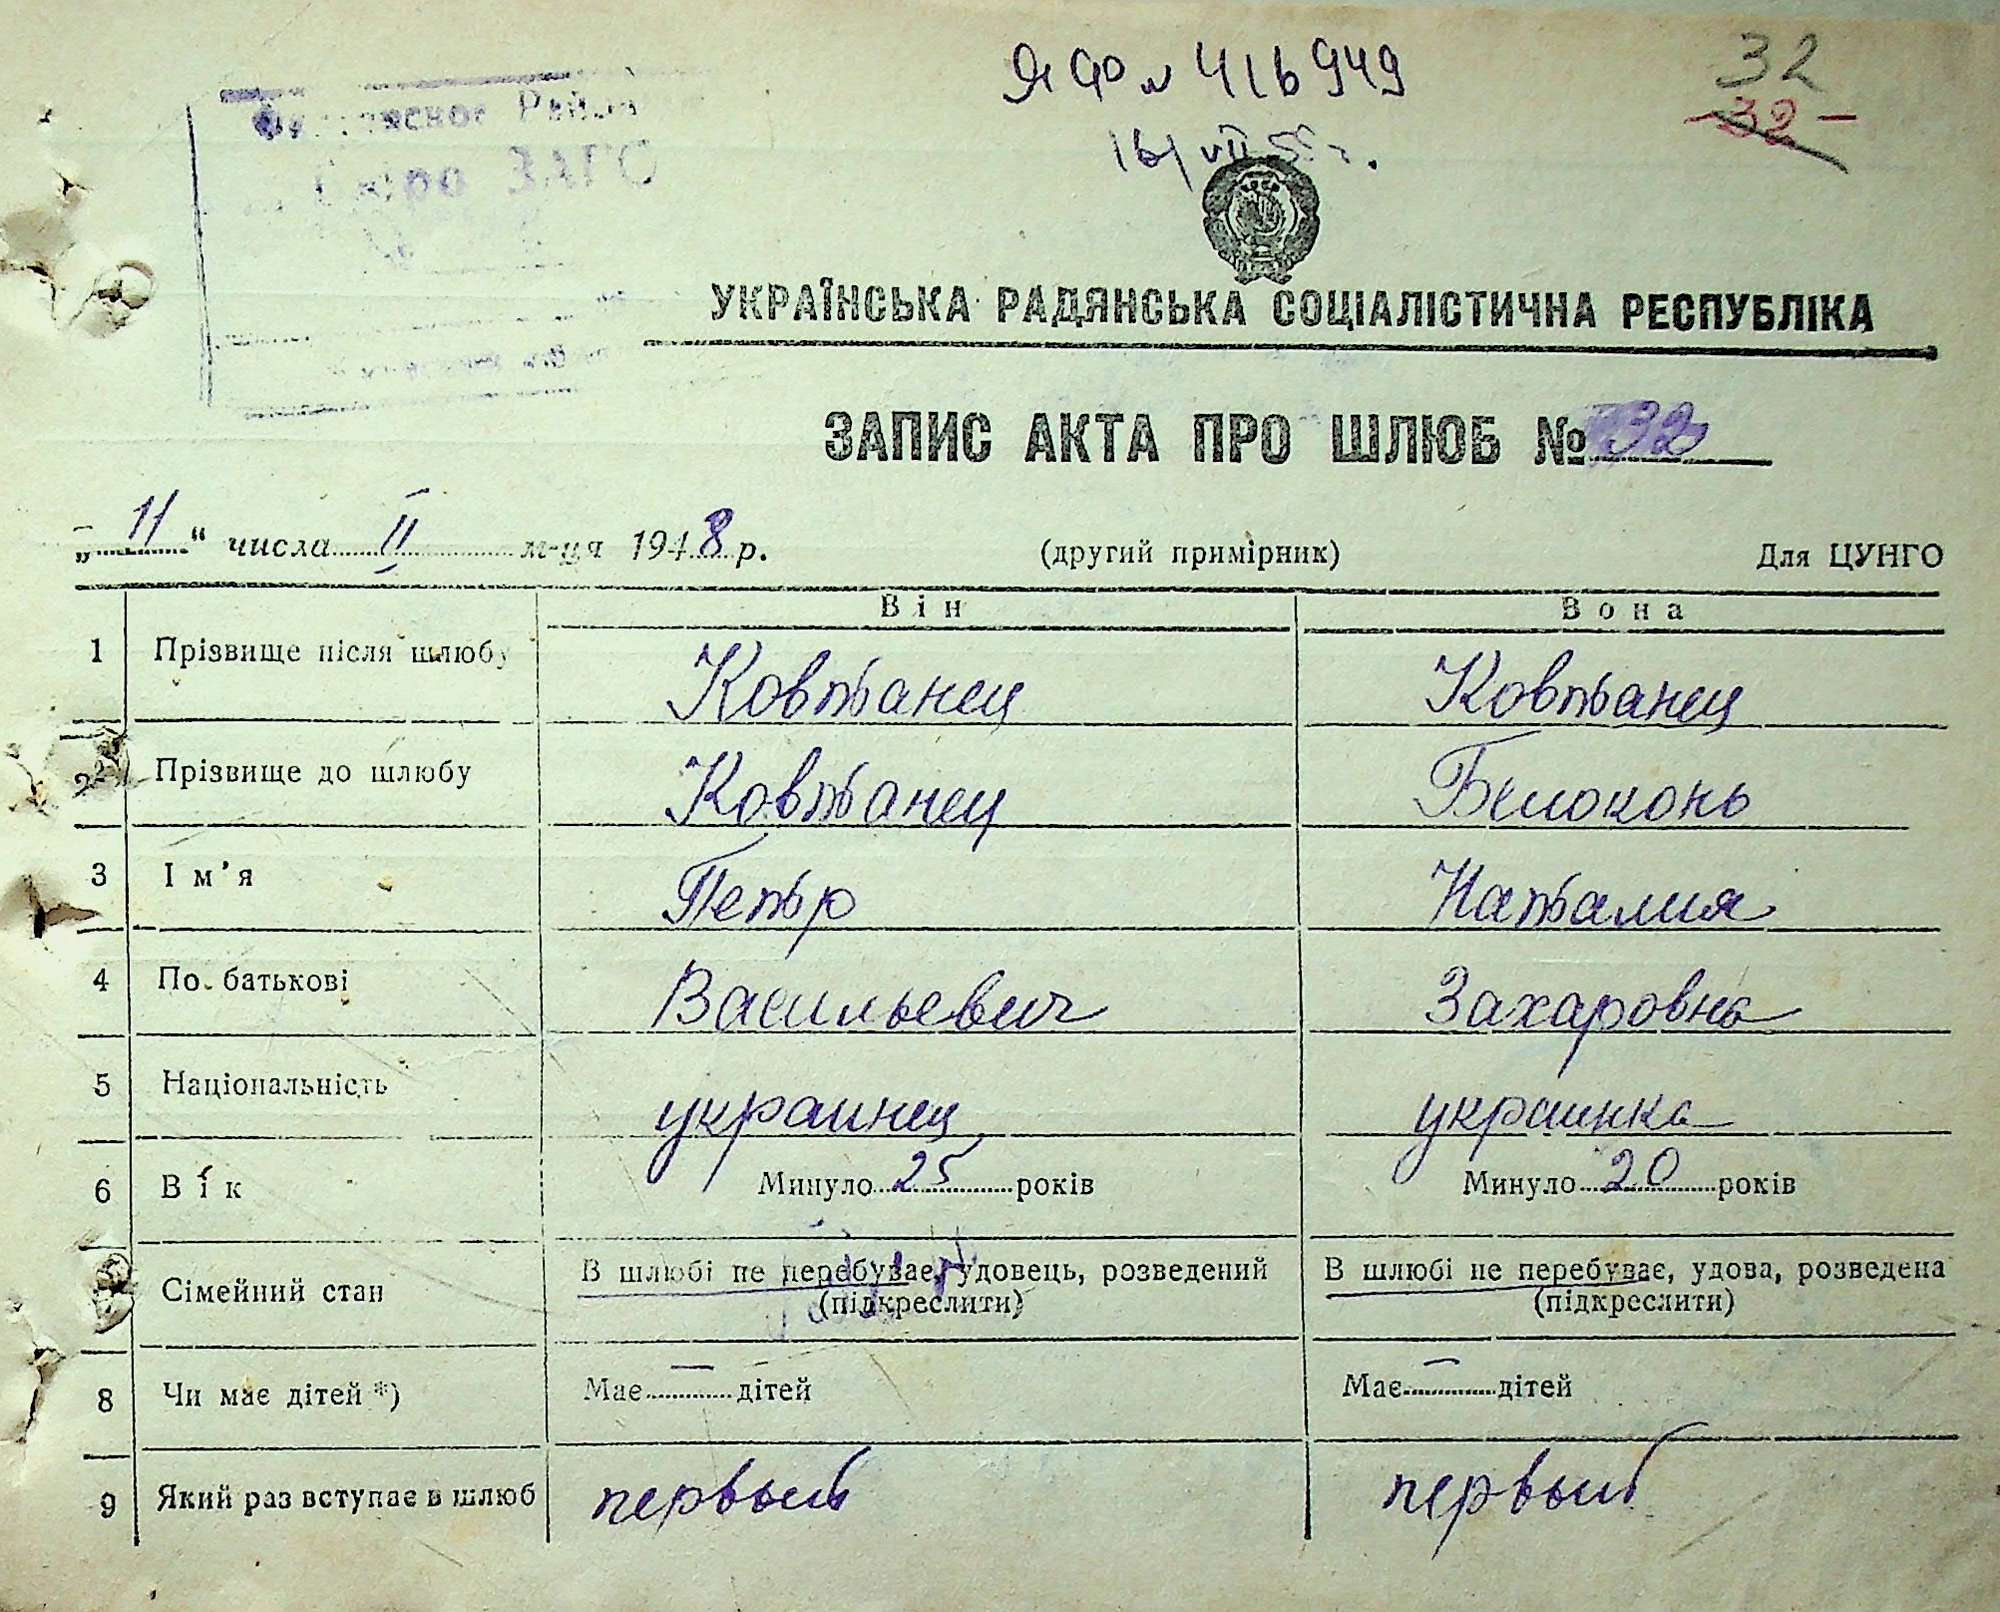 32
ЯФ № 416949
32
16/VII 55 г.
Бюро ЗАГС
УКРАЇНСЬКА РАДЯНСЬКА СОЦІАЛІСТИЧНА РЕСПУБЛІКА
ЗАПИС АКТА ПРО ШЛЮБ № 32
„11“ числа II м-ця 1948 р. (другий примірник) Для ЦУНГО
Він Вона
1 Прізвище після шлюбу Ковтанец Ковтанец
2 Прізвище до шлюбу Ковтанец Белоконь
3 Ім’я Петр Наталия
4 По батькові Васильевич Захаровна
5 Національність украинец украинка
6 Вік Минуло 25 років Минуло 20 років
Сімейний стан В шлюбі не перебуває, удовець, розведений В шлюбі не перебуває, удова, розведена
(підкреслити) (підкреслити)
8 Чи має дітей *) Має — дітей Має — дітей
9 Який раз вступає в шлюб первый первый